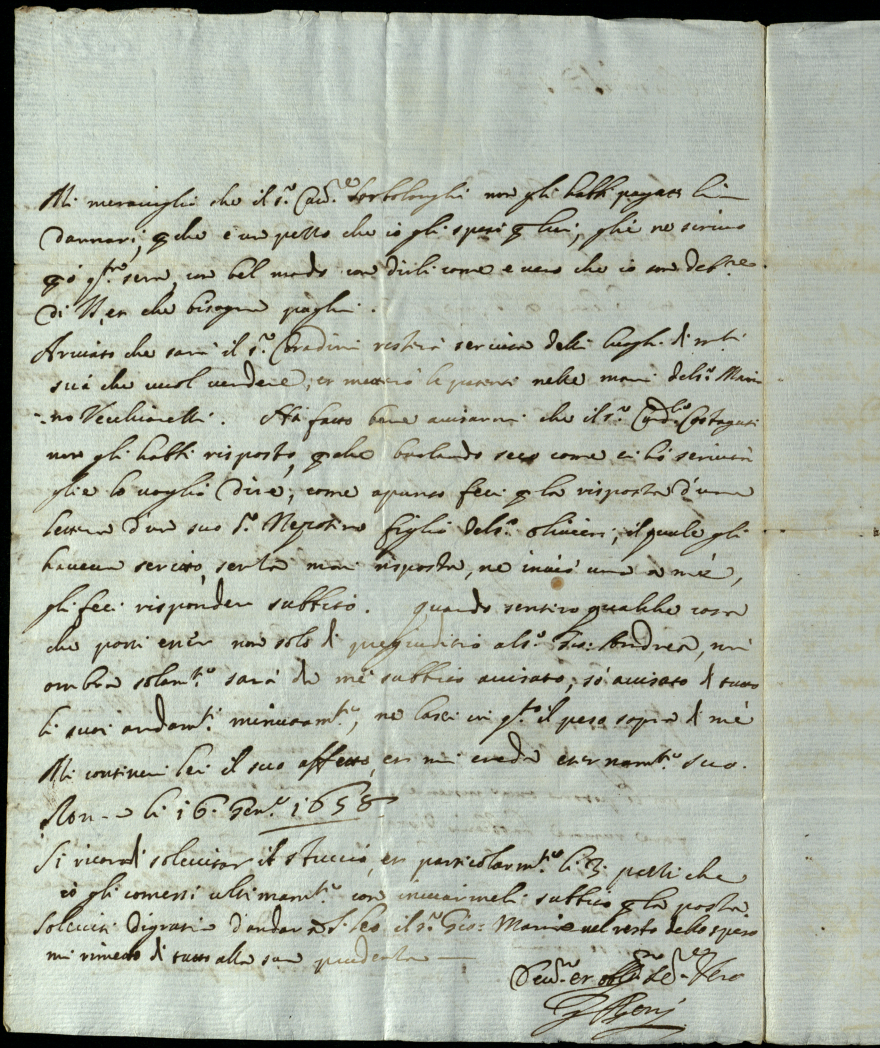 Mi meraviglia che il s.r Cav.re Bortolonghi non gli habbi pagati li
dannari, p che è un pezzo che io gli spesi p lui, glie ne scrivo
sera, con bel modo con dirli come e vero che io son deb.re
di che bisogna paghi.
Arivato che sarà il s.r Coradini restirà servita delli luoghi di monti
suá che vuol vendere, et metterà le patenti nelle mani del s.r Mari-
-no Vecchiarelli. Hà fatto bene avisarmi che il s.r Costaguti
non gli habbi risposto, p che burlando seco come ci hò servitù
glie lo voglio dire, come apunto feci p la risposta d'una
lettera d'un suo s.r Nepotino figlio del s.r Olivieri, il quale gli
haveva scritto, senza mai risposta, ne inviò una a mé,
gli feci rispondere subbito. Quando sentirò qualche cosa
che possi esser non solo di pregiuditio al s.r Gio: Andrea, mà
ombra solam.te sarà da mé subbito avisato, sò avisato di tutto
li suoi andam.ti minutam.te, ne lasci in q.to il peso sopra di mé
Mi continui lei il suo affetto, et mi creda esser nom.te suo.
Roma li 16 Gen.ro 1658
Si ricordi solecitar il stuccio, et particolarm.te li 3 pezzi che
io gli comessi ultimam.te con inviarmeli subbito p la posta
Soleciti Digratia d'andar à S. Leo il s.r Gio: Maria nel resto dello speso
mi rimetto di tutto alla sua prudenza
Dev.mo et obb.mo Ser.re Vero